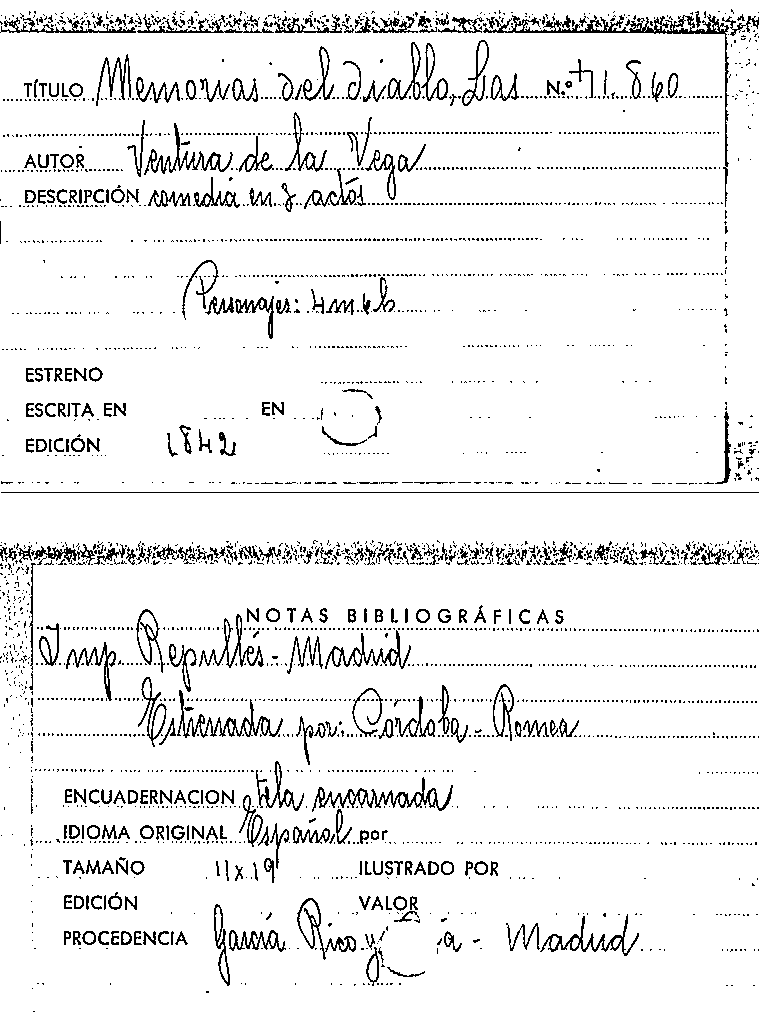 TÍTULO Memorias del diablo, Las N.º 71.860
AUTOR Ventura de la Vega
DESCRIPCIÓN comedia en 3 actos
Personajes: 4m 6h
ESTRENO
ESCRITA EN EN
EDICIÓN 1842
NOTAS BIBLIOGRÁFICAS
Imp. Repullés - Madrid
Estrenada por: Córdoba - Romea
ENCUADERNACION tela encarnada
IDIOMA ORIGINAL Español por
TAMAÑO 11x19 ILUSTRADO POR
EDICIÓN VALOR
PROCEDENCIA García Rico y - Madrid